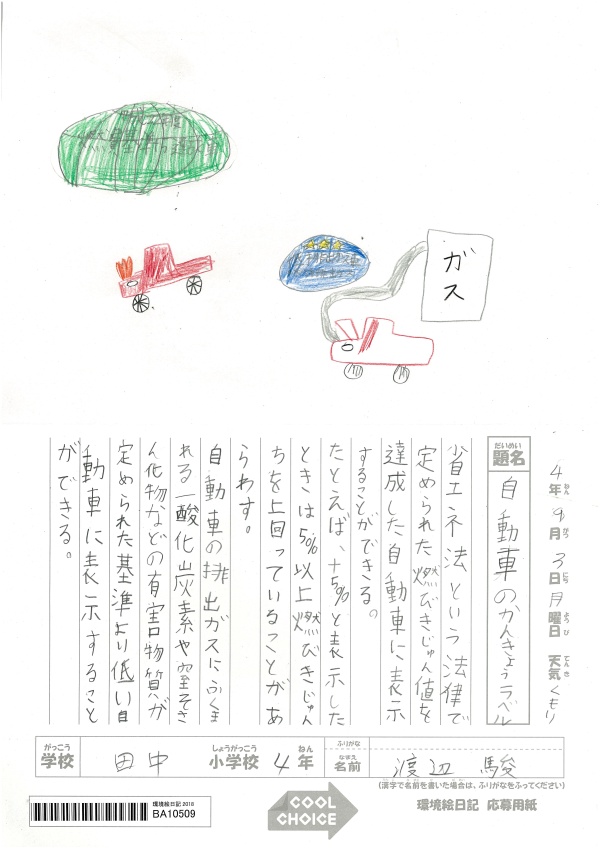 ガス
4年9月3日月曜日 天気くもり
ねん がつ にち ようび てんき
だいめい
題名 自動車のかんきょうラベル
省エネ法という法律で
定められた燃びきじゅん値を
達成した自動車に表示
することができる。
たとえば、+5%と表示した
ときは5%以上燃びきじゅん
ちを上回っていることがあ
らわす。
自動車の排出ガスにふくま
れる一酸化炭素や窒そさ
ん化物などの有害物質が
定められた基準より低い自
動車に表示すること
ができる。
がっこう しょうがっこう ねん
学校 田中 小学校 4年
ふりがな
なまえ
名前 渡辺 駿
(漢字で名前を書いた場合は、ふりがなをふってください)
環境絵日記 2018
BA10509
COOL
CHOICE
環境絵日記 応募用紙